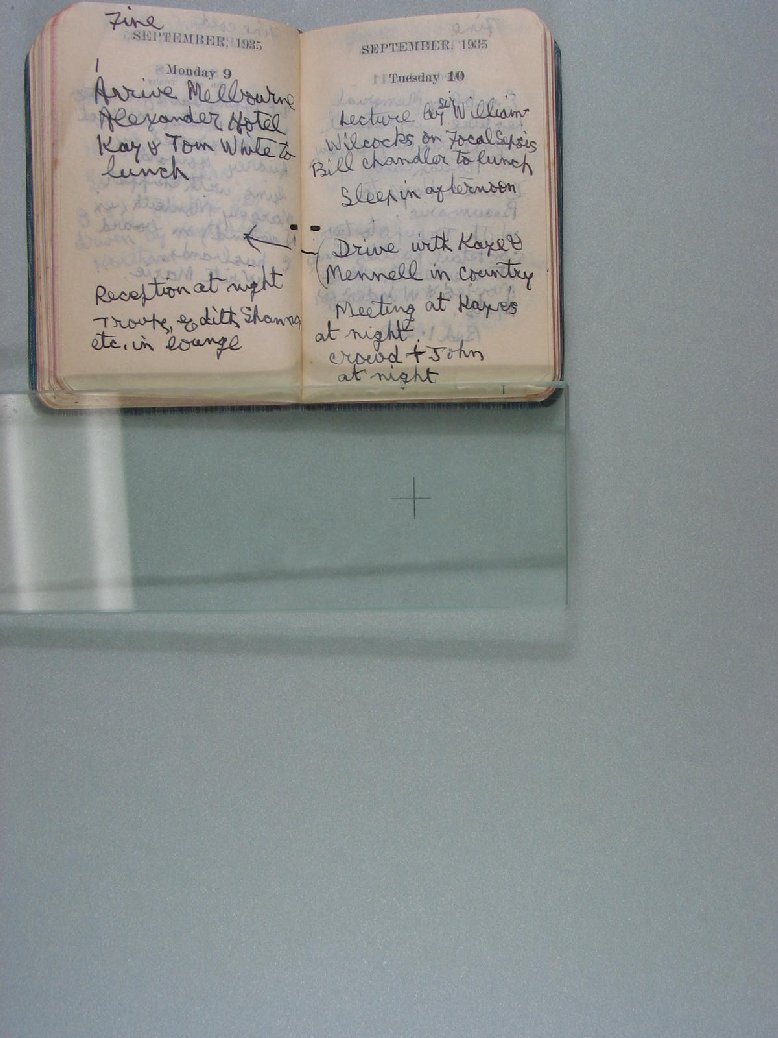 Fine
SEPTEMBER, 1935
Monday 9
Arrive Melbourne
Alexander Hotel
Kay & Tom White to
lunch
Reception at night
Troup, Edith, Shanna
etc. in lounge
SEPTEMBER, 1935
Tuesday 10
Lecture by Sir William
Wilcocks on Focal Sepsis
Bill Chandler to lunch
Sleep in afternoon
Drive with Kaye &
Mennell in country
Meeting at Kayes
at night.
crowd + John
at night